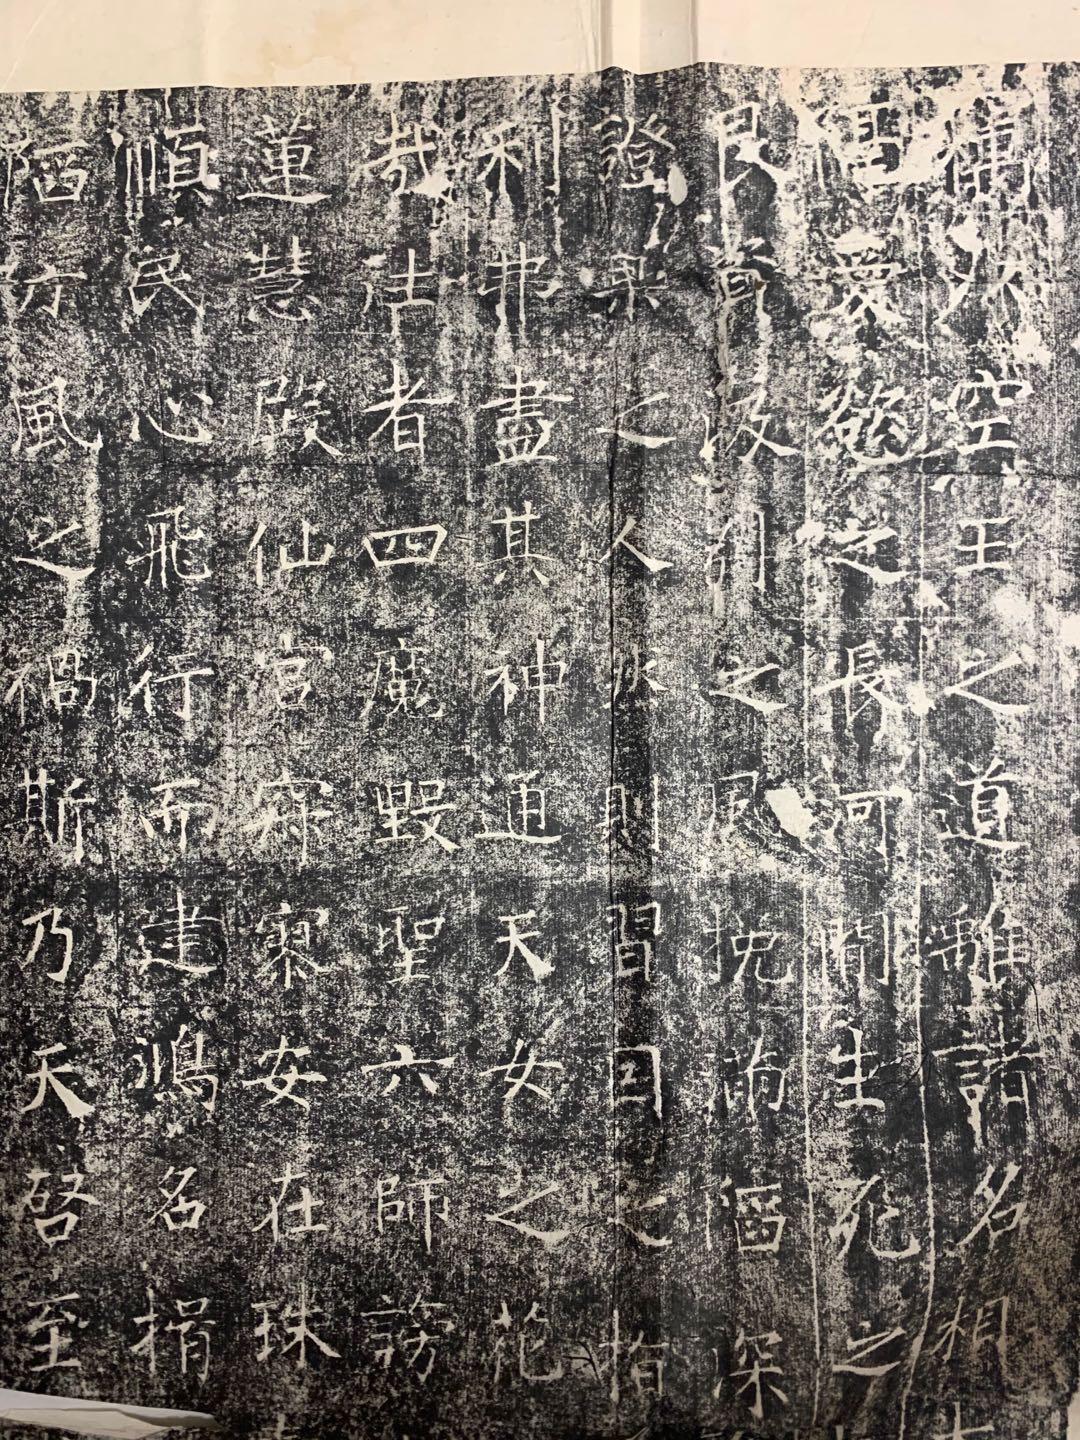 空王之道離諸名相
愛慾之長河開生死之
之 深
證果之人然則習因之指
利弗盡其神通天女之花
哉往者四魔毀聖六師謗
蓮慧殿仙宮寂寥安在珠
順民心飛行而建鴻名揖
陋方風之禍斯乃天啓至